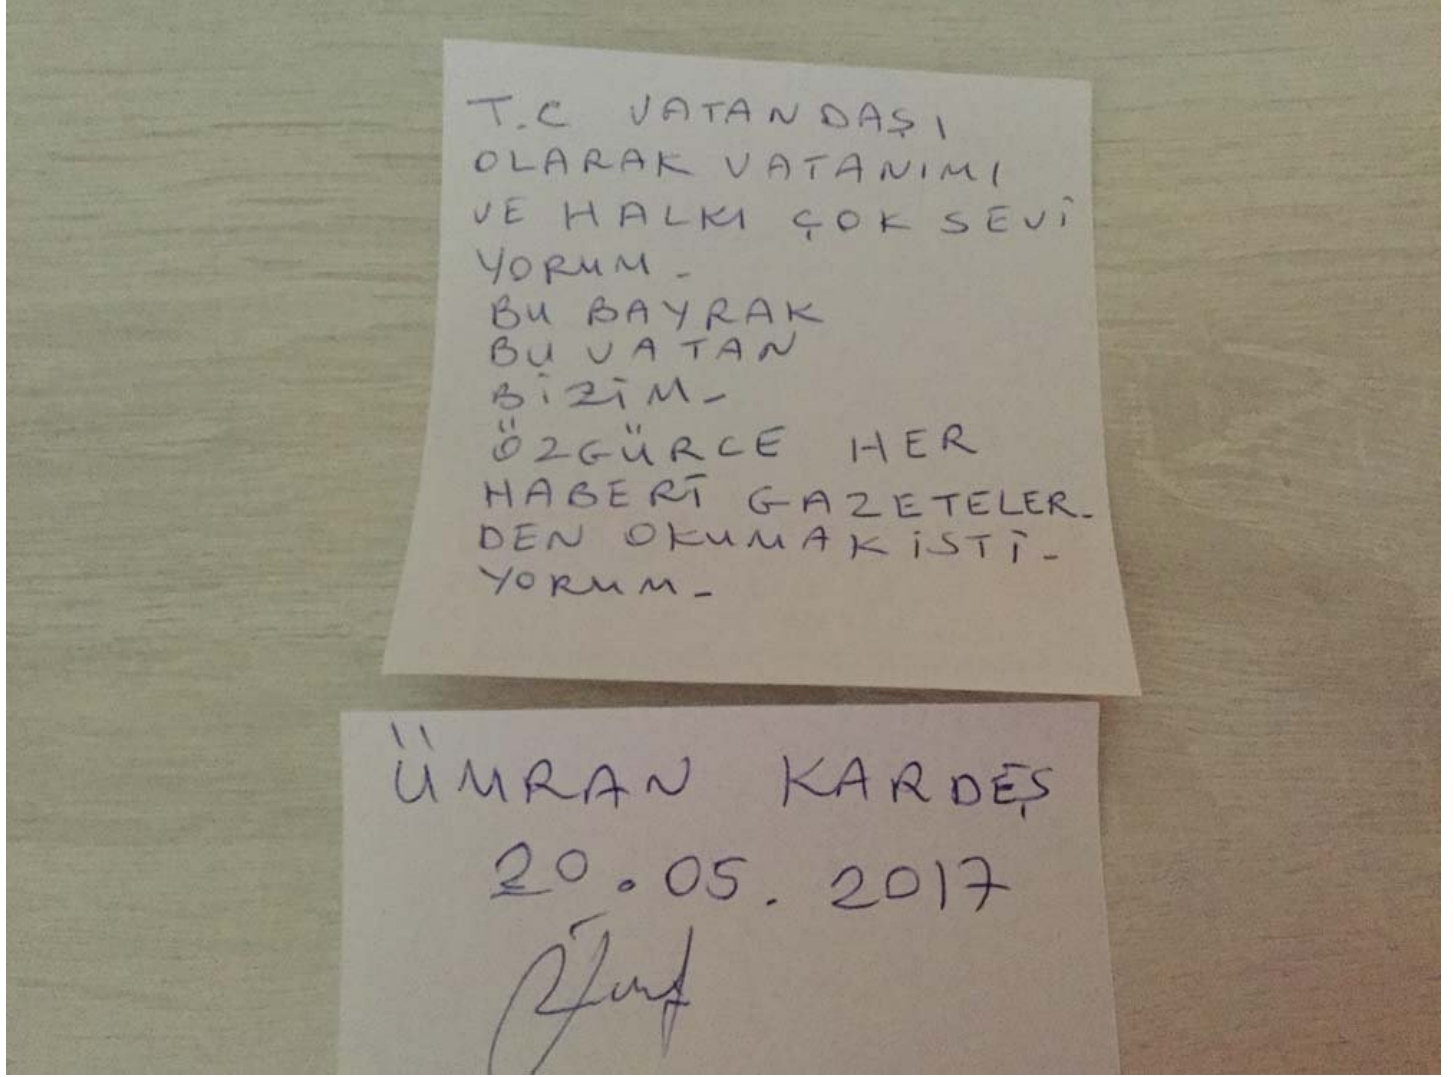 T.C VATANDAŞI
OLARAK VATANIMI
VE HALKI ÇOK SEVİ
YORUM -
BU BAYRAK
BU VATAN
BİZİM -
ÖZGÜRCE HER
HABERİ GAZETELER -
DEN OKUMAK İSTİ -
YORUM -
ÜMRAN KARDEŞ
20.05.2017